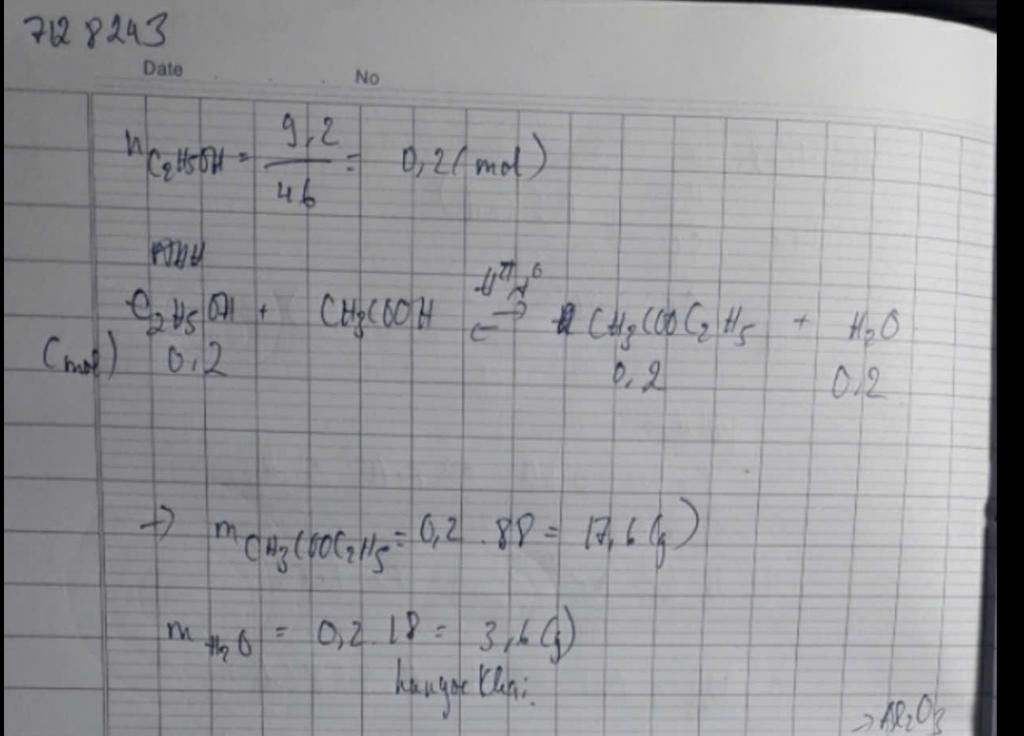 7128243
Date No
n C₂H₅OH = 9,2 / 46 = 0,2 (mol)
PTHH
C₂H₅OH + CH₃COOH ⇌ CH₃COOC₂H₅ + H₂O
(mol) 0,2 0,2 0,2
→ m CH₃COOC₂H₅ = 0,2 . 88 = 17,6 (g)
m H₂O = 0,2 . 18 = 3,6 (g)
→ Al₂O₃